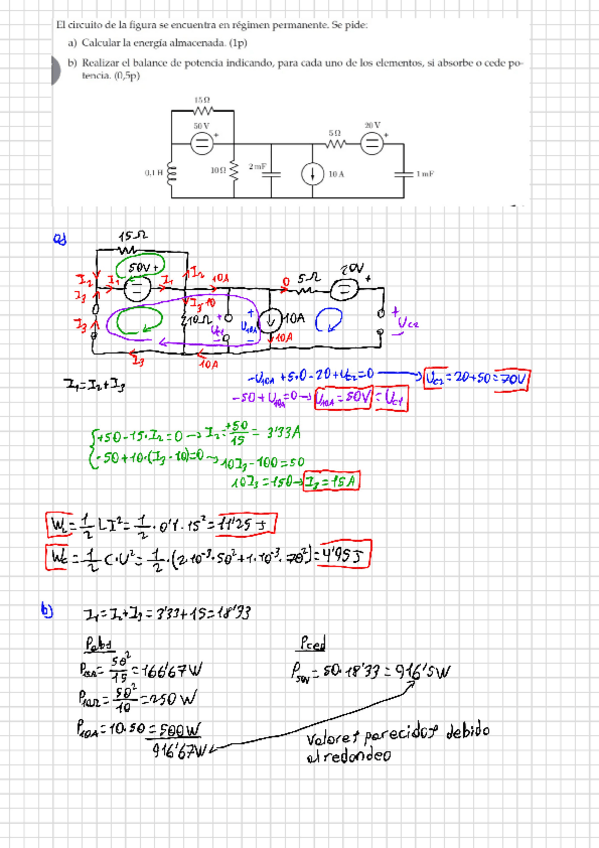 El circuito de la figura se encuentra en régimen permanente. Se pide:
a) Calcular la energía almacenada. (1p)
b) Realizar el balance de potencia indicando, para cada uno de los elementos, si absorbe o cede po-
tencia. (0,5p)
15 Ω
50 V
+
5 Ω
20 V
+
0,1 H
10 Ω
2 mF
10 A
1 mF
a)
15Ω
50V +
I₂
I₁
I₁
I₂
10A
0
5Ω
20V
+
I₃
I₃
I₃-10
10Ω
+
U_C1
-
+
U_10A
-
10A
10A
+
U_C2
-
I₃
10A
I₁=I₂+I₃
-U_10A+5·0-20+U_C2=0 → U_C2=20+50=70V
-50+U_10A=0→ U_10A=50V=U_C1
+50-15·I₂=0→I₂=+50/15=3'33A
-50+10·(I₃-10)=0→10I₃-100=50
10I₃=150→I₃=15A
W_L=1/2 L I²=1/2·0'1·15²=11'25J
W_C=1/2 C·U²=1/2·(2·10⁻³·50²+1·10⁻³·70²)=4'95J
b) I₁=I₂+I₃=3'33+15=18'33
Pabs
Pced
P_15Ω=50²/15=166'67W
P_50V=50·18'33=916'5W
P_10Ω=50²/10=250W
P_10A=10·50=500W
916'67W
Valores parecidos debido
al redondeo